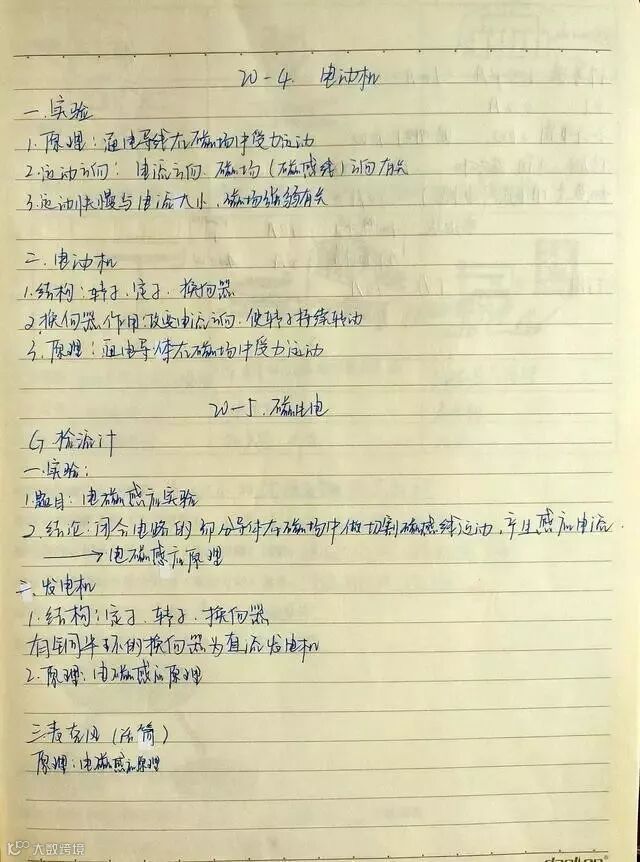 20-4. 电动机
一.实验
1.原理:通电导线在磁场中受力运动
2.运动方向:电流方向.磁场(磁感线)方向有关
3.运动快慢与电流大小,磁场强弱有关
二.电动机
1.结构:转子.定子.换向器
2.换向器作用改变电流方向.使转子持续转动
3.原理:通电导体在磁场中受力运动
20-5.磁生电
G检流计
一.实验:
1.题目:电磁感应实验
2.结论:闭合电路的部分导体在磁场中做切割磁感线运动,产生感应电流.
→电磁感应原理
二.发电机
1.结构:定子.转子.换向器
有铜半环的换向器为直流发电机
2.原理:电磁感应原理
三.麦克风(话筒)
原理:电磁感应原理
大数跨境